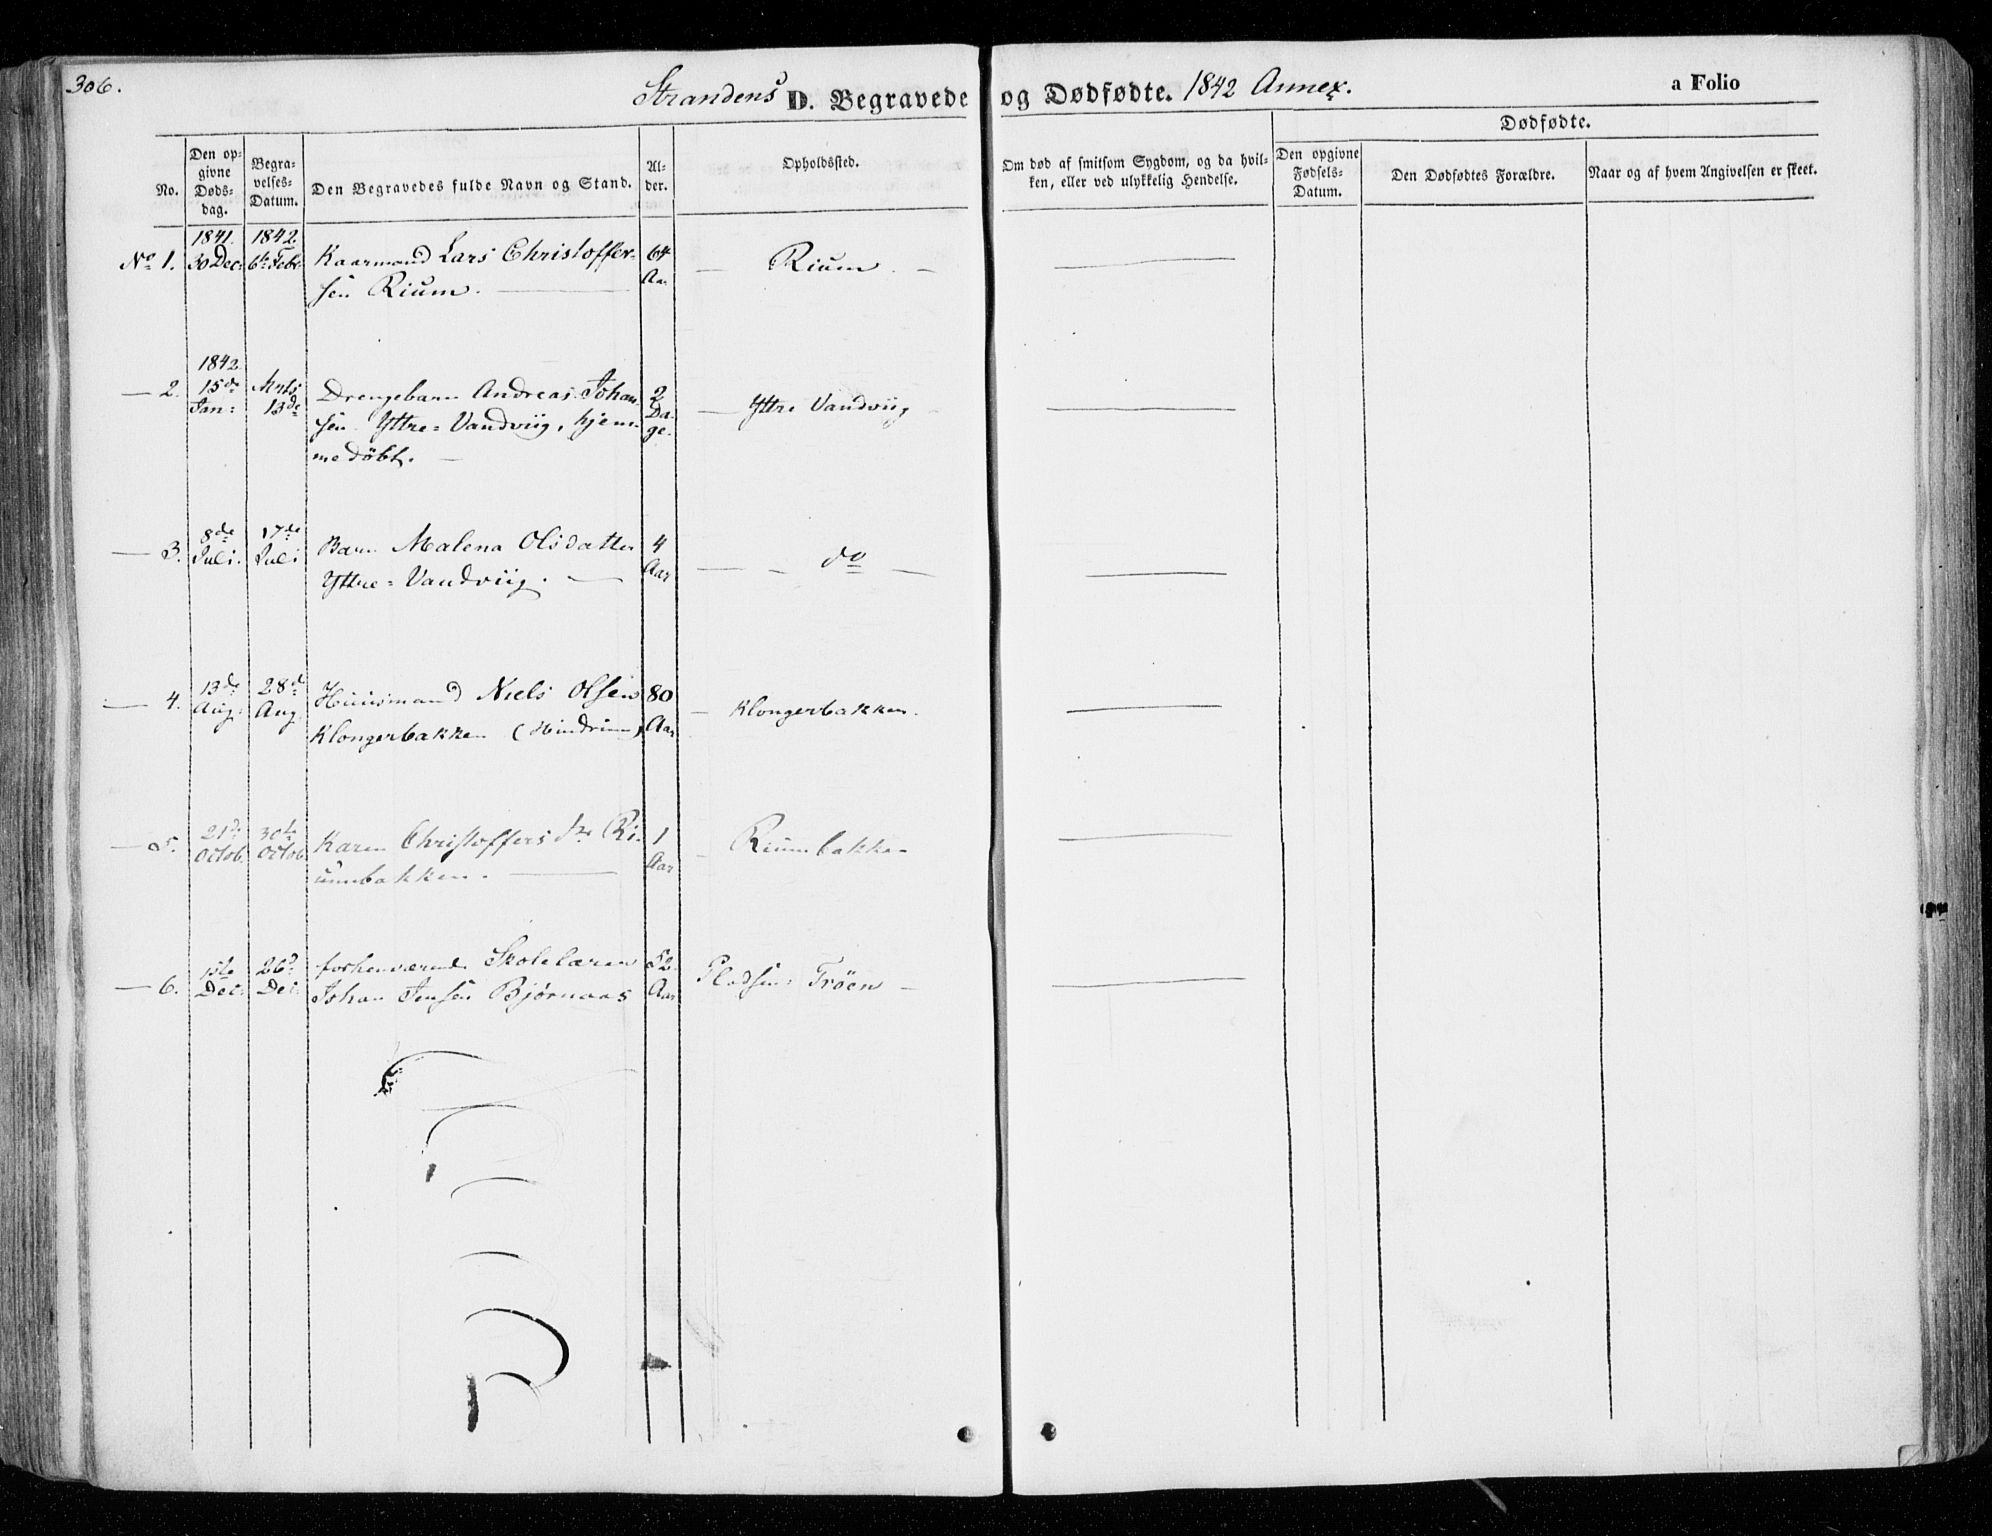 306.
Strandens D. Begravede og Dødfødte. 1842 Annex. a Folio
Dødfødte.
No.
Den op-
givne
Døds-
dag.
Begra-
velses-
Datum.
Den Begravedes fulde Navn og Stand.
Al-
der.
Opholdssted.
Om død af smitsom Sygdom, og da hvil-
ken, eller ved ulykkelig Hendelse.
Den opgivne
Fødsels-
Datum.
Den Dødfødtes Forældre.
Naar og af hvem Angivelsen er skeet.
1841. 1842
No 1. 30 Dec: 6te Febr. Kaarmand Lars Christoffer- 64 — Rium. —
sen Rium. — Aar
1842
— 2. 15de Mrts Drengebarn Andreas Johan- 2 — Yttre Vandviig
Jan: 13de sen Yttre=Vandviig, hjem- Da-
medøbt. — ge.
— 3. 8de 17de Barn Malena Olsdatter 4 — do —
Juli. Juli Yttre=Vandviig. — Aar
— 4. 13de 28de Huusmand Niels Olsen 80 — Klongerbakken.
Aug. Aug. Klongerbakken (Hindrum) Aar
— 5. 21de 30te Karen Christoffersdr Ri- 1 — Riumbakken
Octob. Octob umbakken. — Aar
— 6. 1ste 26d forhenværende Skolelærer 52 Pladsen Trøen —
Dec: Dec. Johan Jensen Bjørnaas Aar